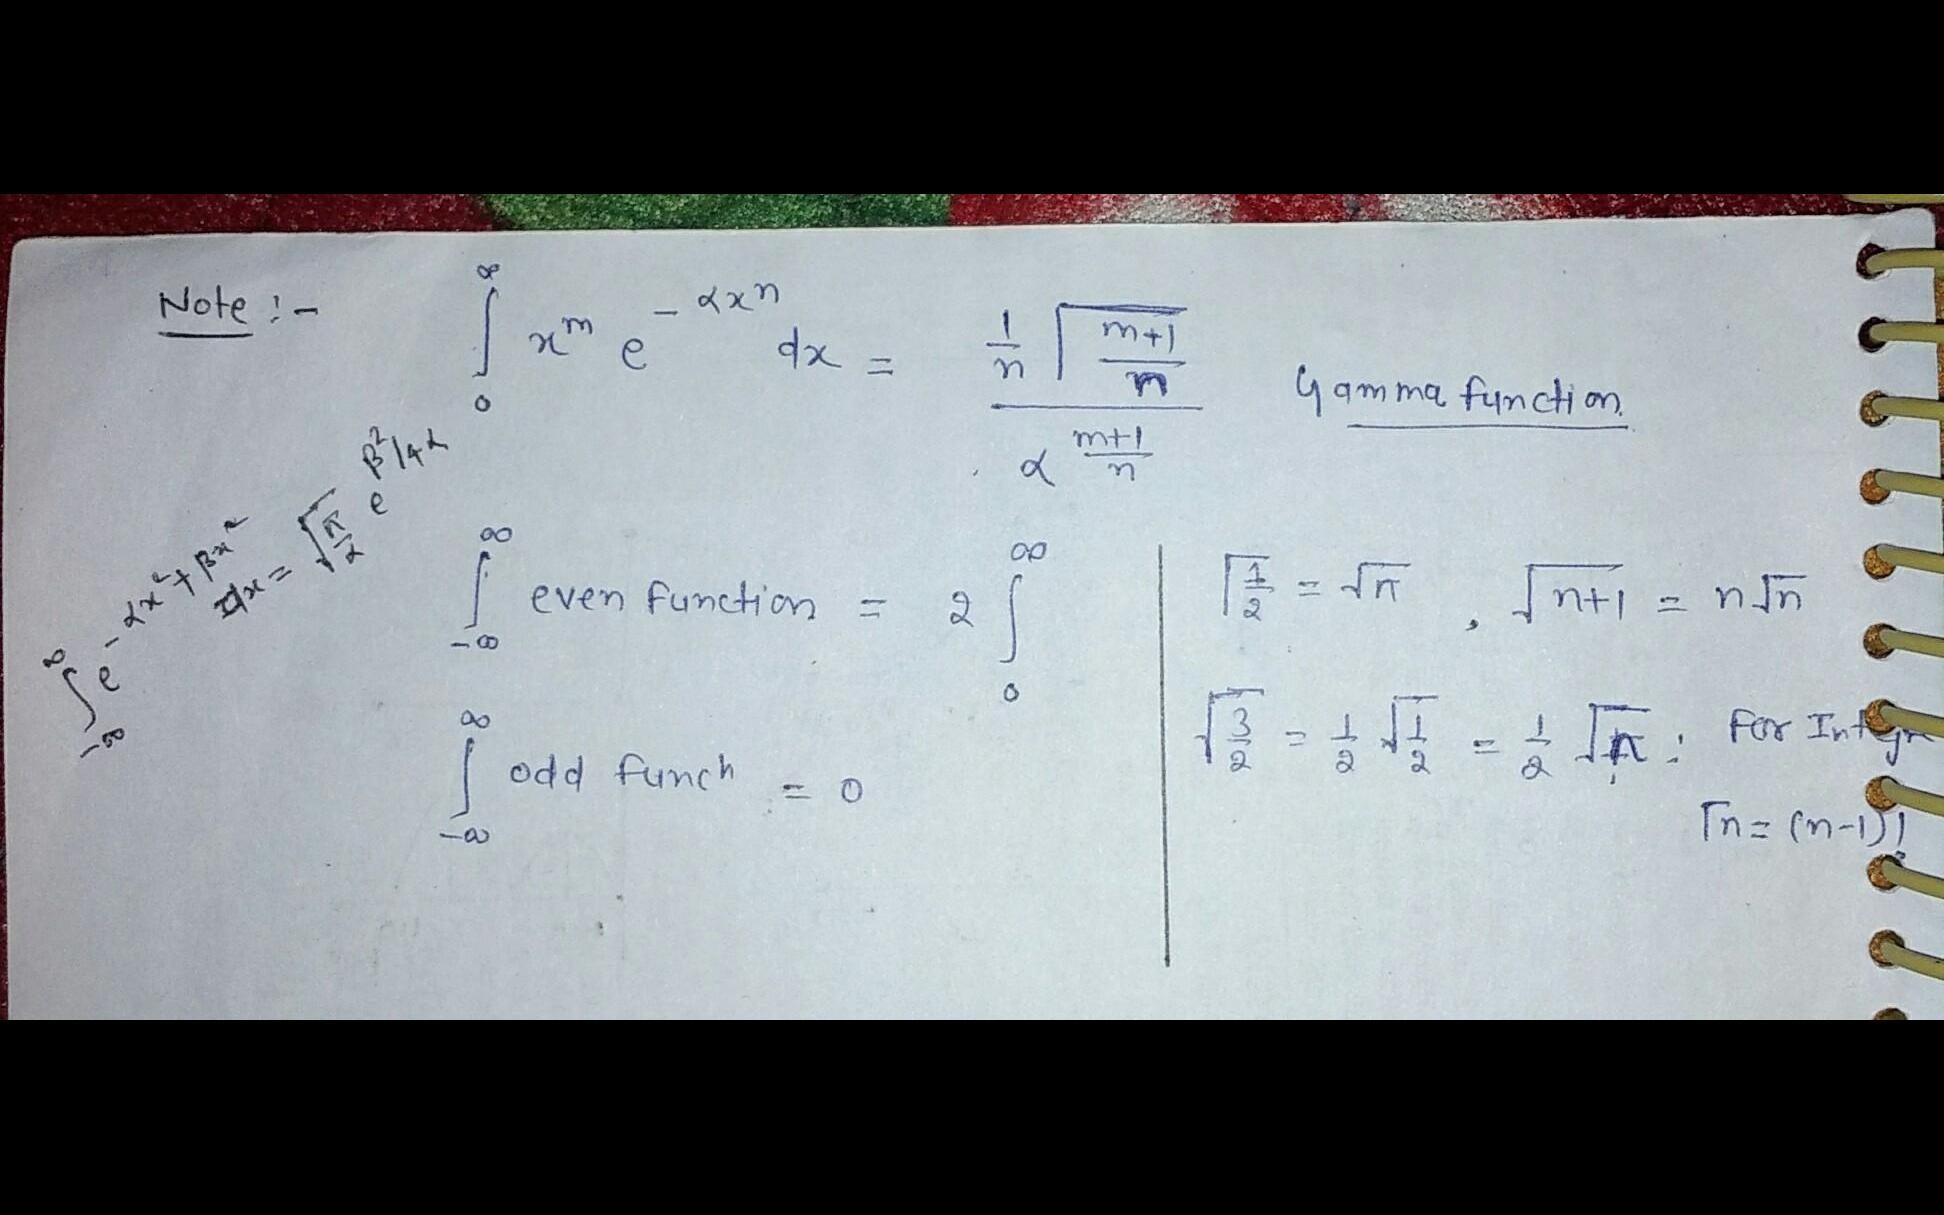 Note :- ∫₀^∞ x^m e^{-αx^n} dx = (1/n Γ (m+1)/n) / α^{(m+1)/n} Gamma function
∫_{-∞}^∞ e^{-αx²+βx²} dx = √(π/α) e^{β²/4α}
∫_{-∞}^∞ even function = 2 ∫₀^∞
∫_{-∞}^∞ odd funcn = 0
Γ1/2 = √π , Γn+1 = nΓn
Γ3/2 = 1/2 Γ1/2 = 1/2 √π ; For
Γn = (n-1)!